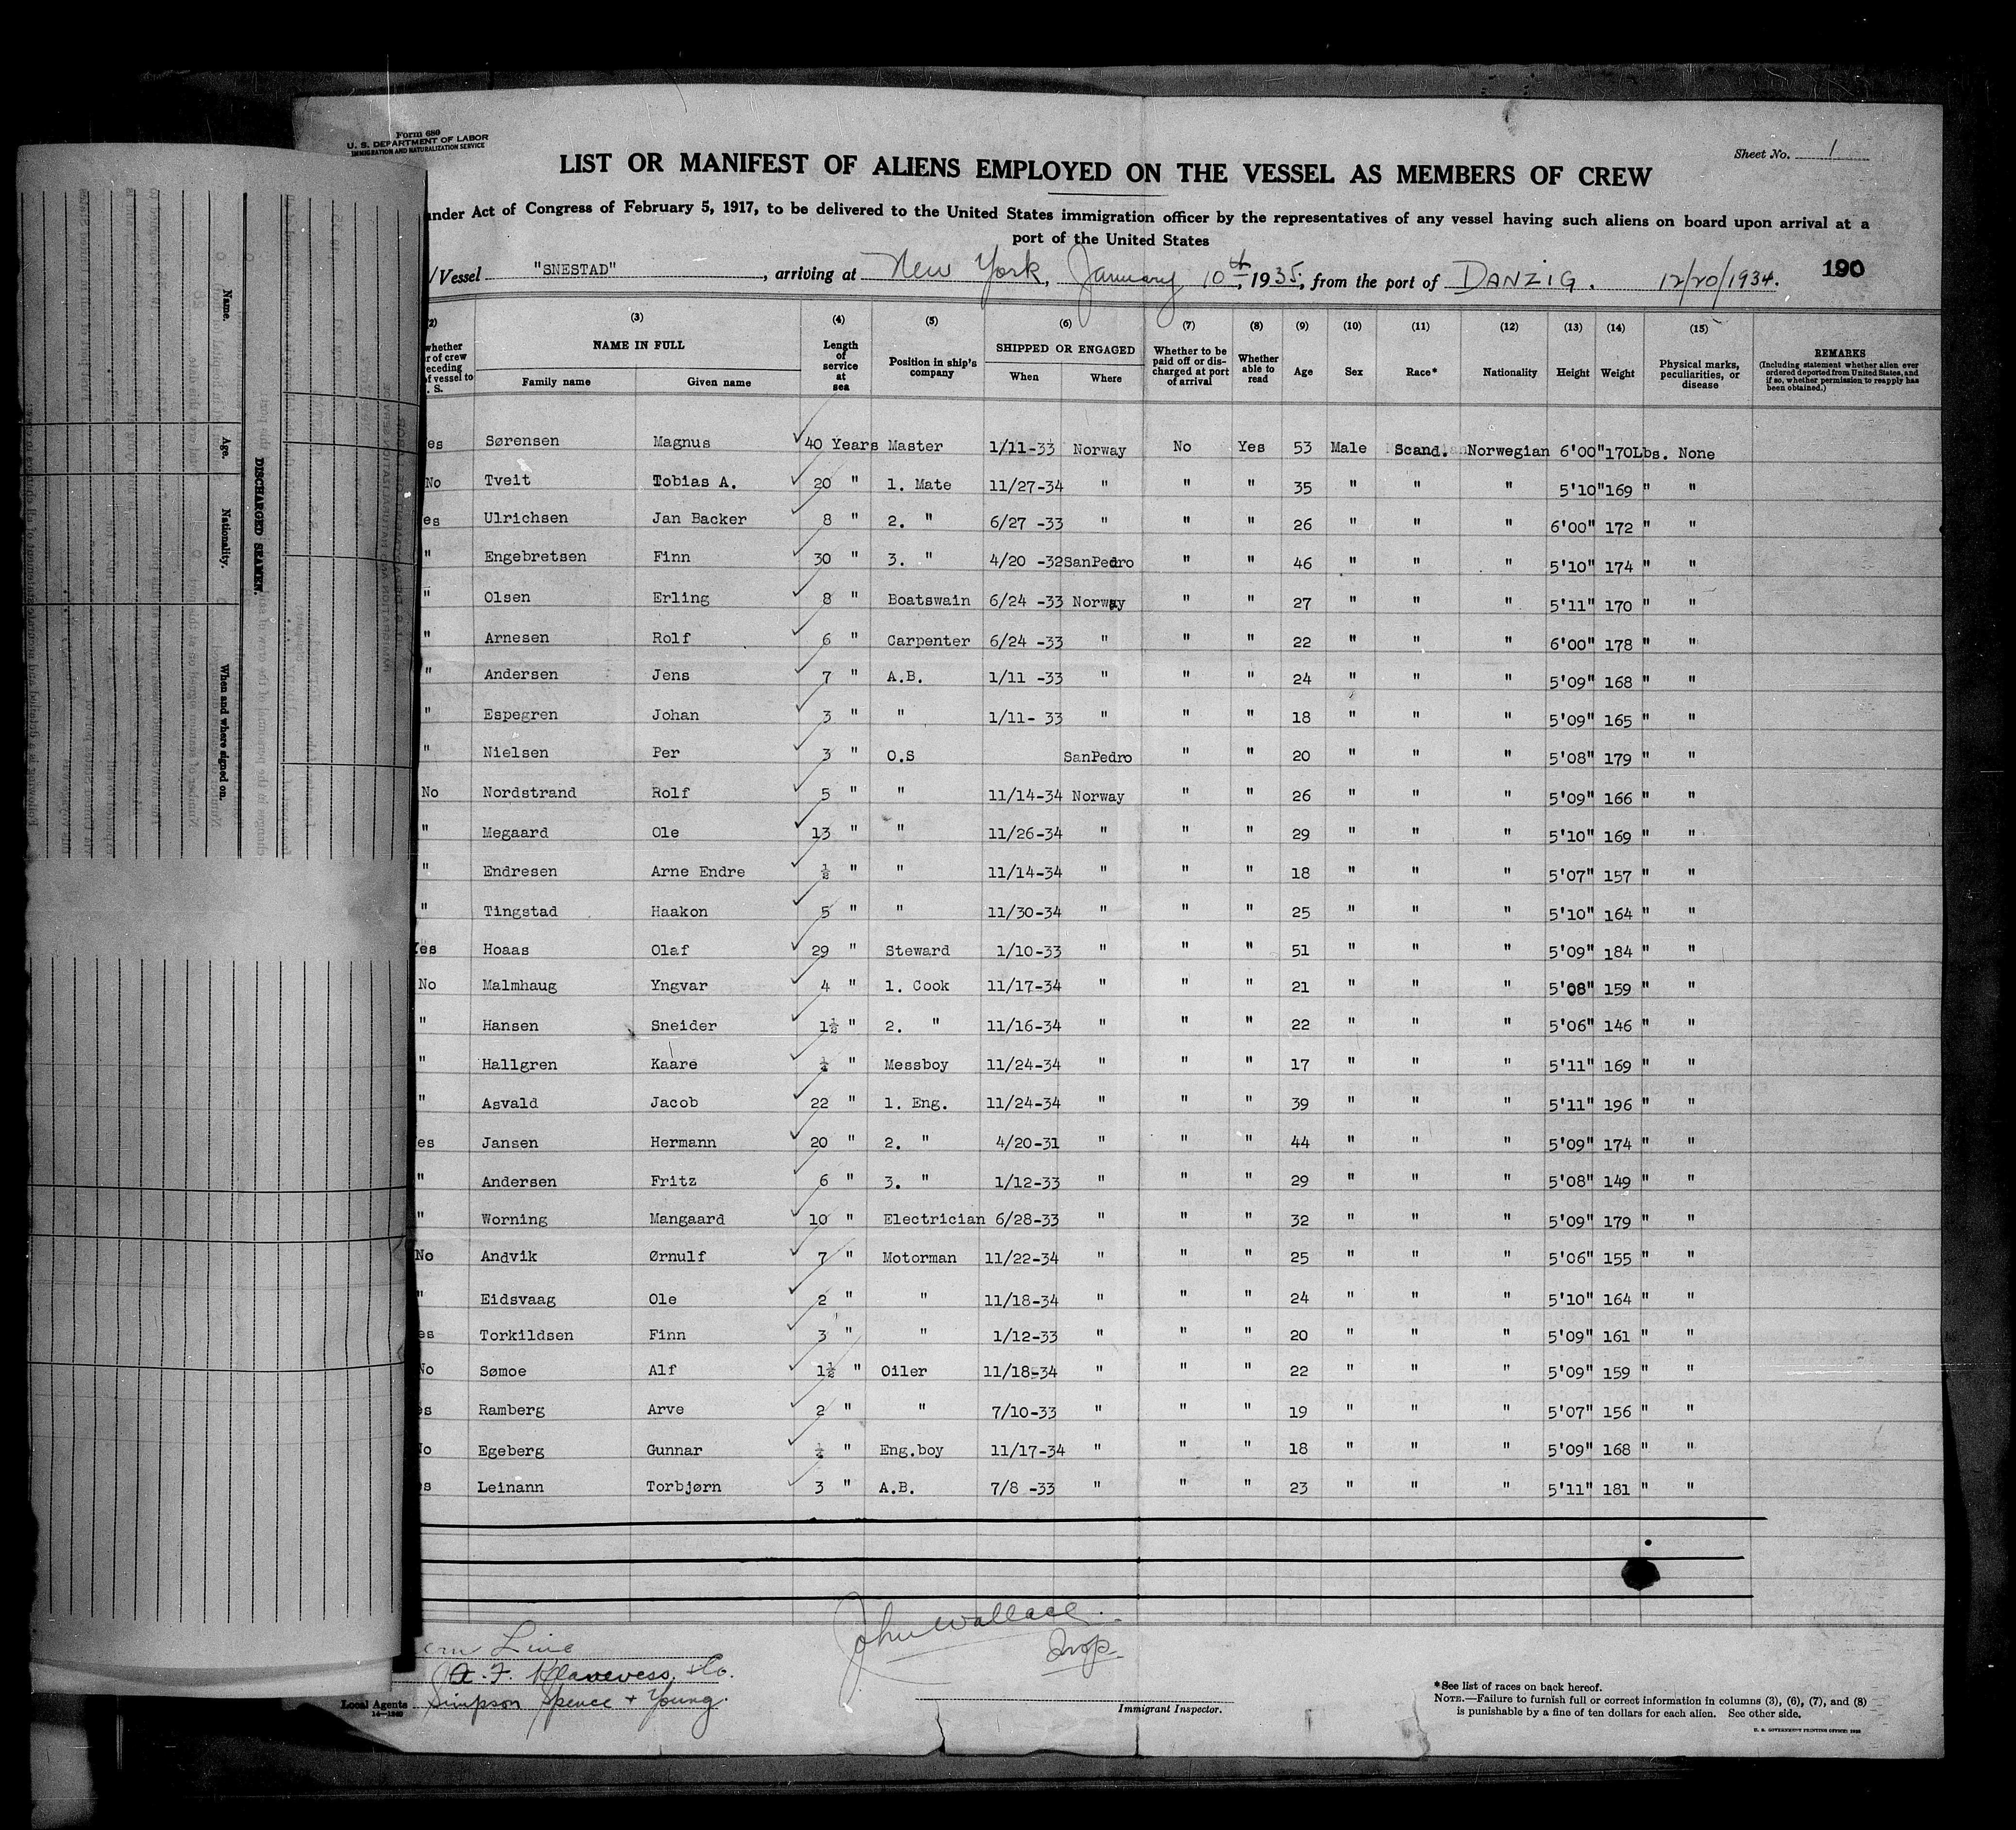 Form 680
U. S. DEPARTMENT OF LABOR
IMMIGRATION AND NATURALIZATION SERVICE
Sheet No. 1
LIST OR MANIFEST OF ALIENS EMPLOYED ON THE VESSEL AS MEMBERS OF CREW
under Act of Congress of February 5, 1917, to be delivered to the United States immigration officer by the representatives of any vessel having such aliens on board upon arrival at a
port of the United States
Vessel "SNESTAD", arriving at New York, January 10th, 1935, from the port of DANZIG. 12/20/1934.
190
(2) (3) (4) (5) (6) (7) (8) (9) (10) (11) (12) (13) (14) (15)
whether
r of crew
receding
of vessel to
. S.
NAME IN FULL
Family name Given name
Length of service at sea
Position in ship's company
SHIPPED OR ENGAGED
When Where
Whether to be paid off or discharged at port of arrival
Whether able to read
Age Sex Race* Nationality Height Weight
Physical marks, peculiarities, or disease
REMARKS
(Including statement whether alien ever ordered deported from United States, and if so, whether permission to reapply has been obtained.)
es Sørensen Magnus 40 Years Master 1/11-33 Norway No Yes 53 Male Scand. Norwegian 6'00" 170Lbs. None
No Tveit Tobias A. 20 " 1. Mate 11/27-34 " " " 35 " " " 5'10" 169 " "
es Ulrichsen Jan Backer 8 " 2. " 6/27 -33 " " " 26 " " " 6'00" 172 " "
" Engebretsen Finn 30 " 3. " 4/20 -32 SanPedro " " 46 " " " 5'10" 174 " "
" Olsen Erling 8 " Boatswain 6/24 -33 Norway " " 27 " " " 5'11" 170 " "
" Arnesen Rolf 6 " Carpenter 6/24 -33 " " " 22 " " " 6'00" 178 " "
" Andersen Jens 7 " A.B. 1/11 -33 " " " 24 " " " 5'09" 168 " "
" Espegren Johan 3 " " 1/11- 33 " " " 18 " " " 5'09" 165 " "
" Nielsen Per 3 " O.S SanPedro " " 20 " " " 5'08" 179 " "
No Nordstrand Rolf 5 " " 11/14-34 Norway " " 26 " " " 5'09" 166 " "
" Megaard Ole 13 " " 11/26-34 " " " 29 " " " 5'10" 169 " "
" Endresen Arne Endre ½ " " 11/14-34 " " " 18 " " " 5'07" 157 " "
" Tingstad Haakon 5 " " 11/30-34 " " " 25 " " " 5'10" 164 " "
Yes Hoaas Olaf 29 " Steward 1/10-33 " " " 51 " " " 5'09" 184 " "
No Malmhaug Yngvar 4 " 1. Cook 11/17-34 " " " 21 " " " 5'08" 159 " "
" Hansen Sneider 1½ " 2. " 11/16-34 " " " 22 " " " 5'06" 146 " "
" Hallgren Kaare " Messboy 11/24-34 " " " 17 " " " 5'11" 169 " "
" Asvald Jacob 22 " 1. Eng. 11/24-34 " " " 39 " " " 5'11" 196 " "
es Jansen Hermann 20 " 2. " 4/20-31 " " " 44 " " " 5'09" 174 " "
" Andersen Fritz 6 " 3. " 1/12-33 " " " 29 " " " 5'08" 149 " "
" Worning Mangaard 10 " Electrician 6/28-33 " " " 32 " " " 5'09" 179 " "
No Andvik Ørnulf 7 " Motorman 11/22-34 " " " 25 " " " 5'06" 155 " "
" Eidsvaag Ole 2 " " 11/18-34 " " " 24 " " " 5'10" 164 " "
es Torkildsen Finn 3 " " 1/12-33 " " " 20 " " " 5'09" 161 " "
No Sømoe Alf 1½ " Oiler 11/18-34 " " " 22 " " " 5'09" 159 " "
es Ramberg Arve 2 " " 7/10-33 " " " 19 " " " 5'07" 156 " "
No Egeberg Gunnar " Eng.boy 11/17-34 " " " 18 " " " 5'09" 168 " "
es Leinann Torbjørn 3 " A.B. 7/8 -33 " " " 23 " " " 5'11" 181 " "
Line
A. F. Klaveness & Co.
Local Agents Simpson Spence & Young.
14—1240
John Wallace
Insp.
Immigrant Inspector.
*See list of races on back hereof.
NOTE.—Failure to furnish full or correct information in columns (3), (6), (7), and (8)
is punishable by a fine of ten dollars for each alien. See other side.
DISCHARGED SEAMEN.
Name. Age. Nationality. When and where signed on.